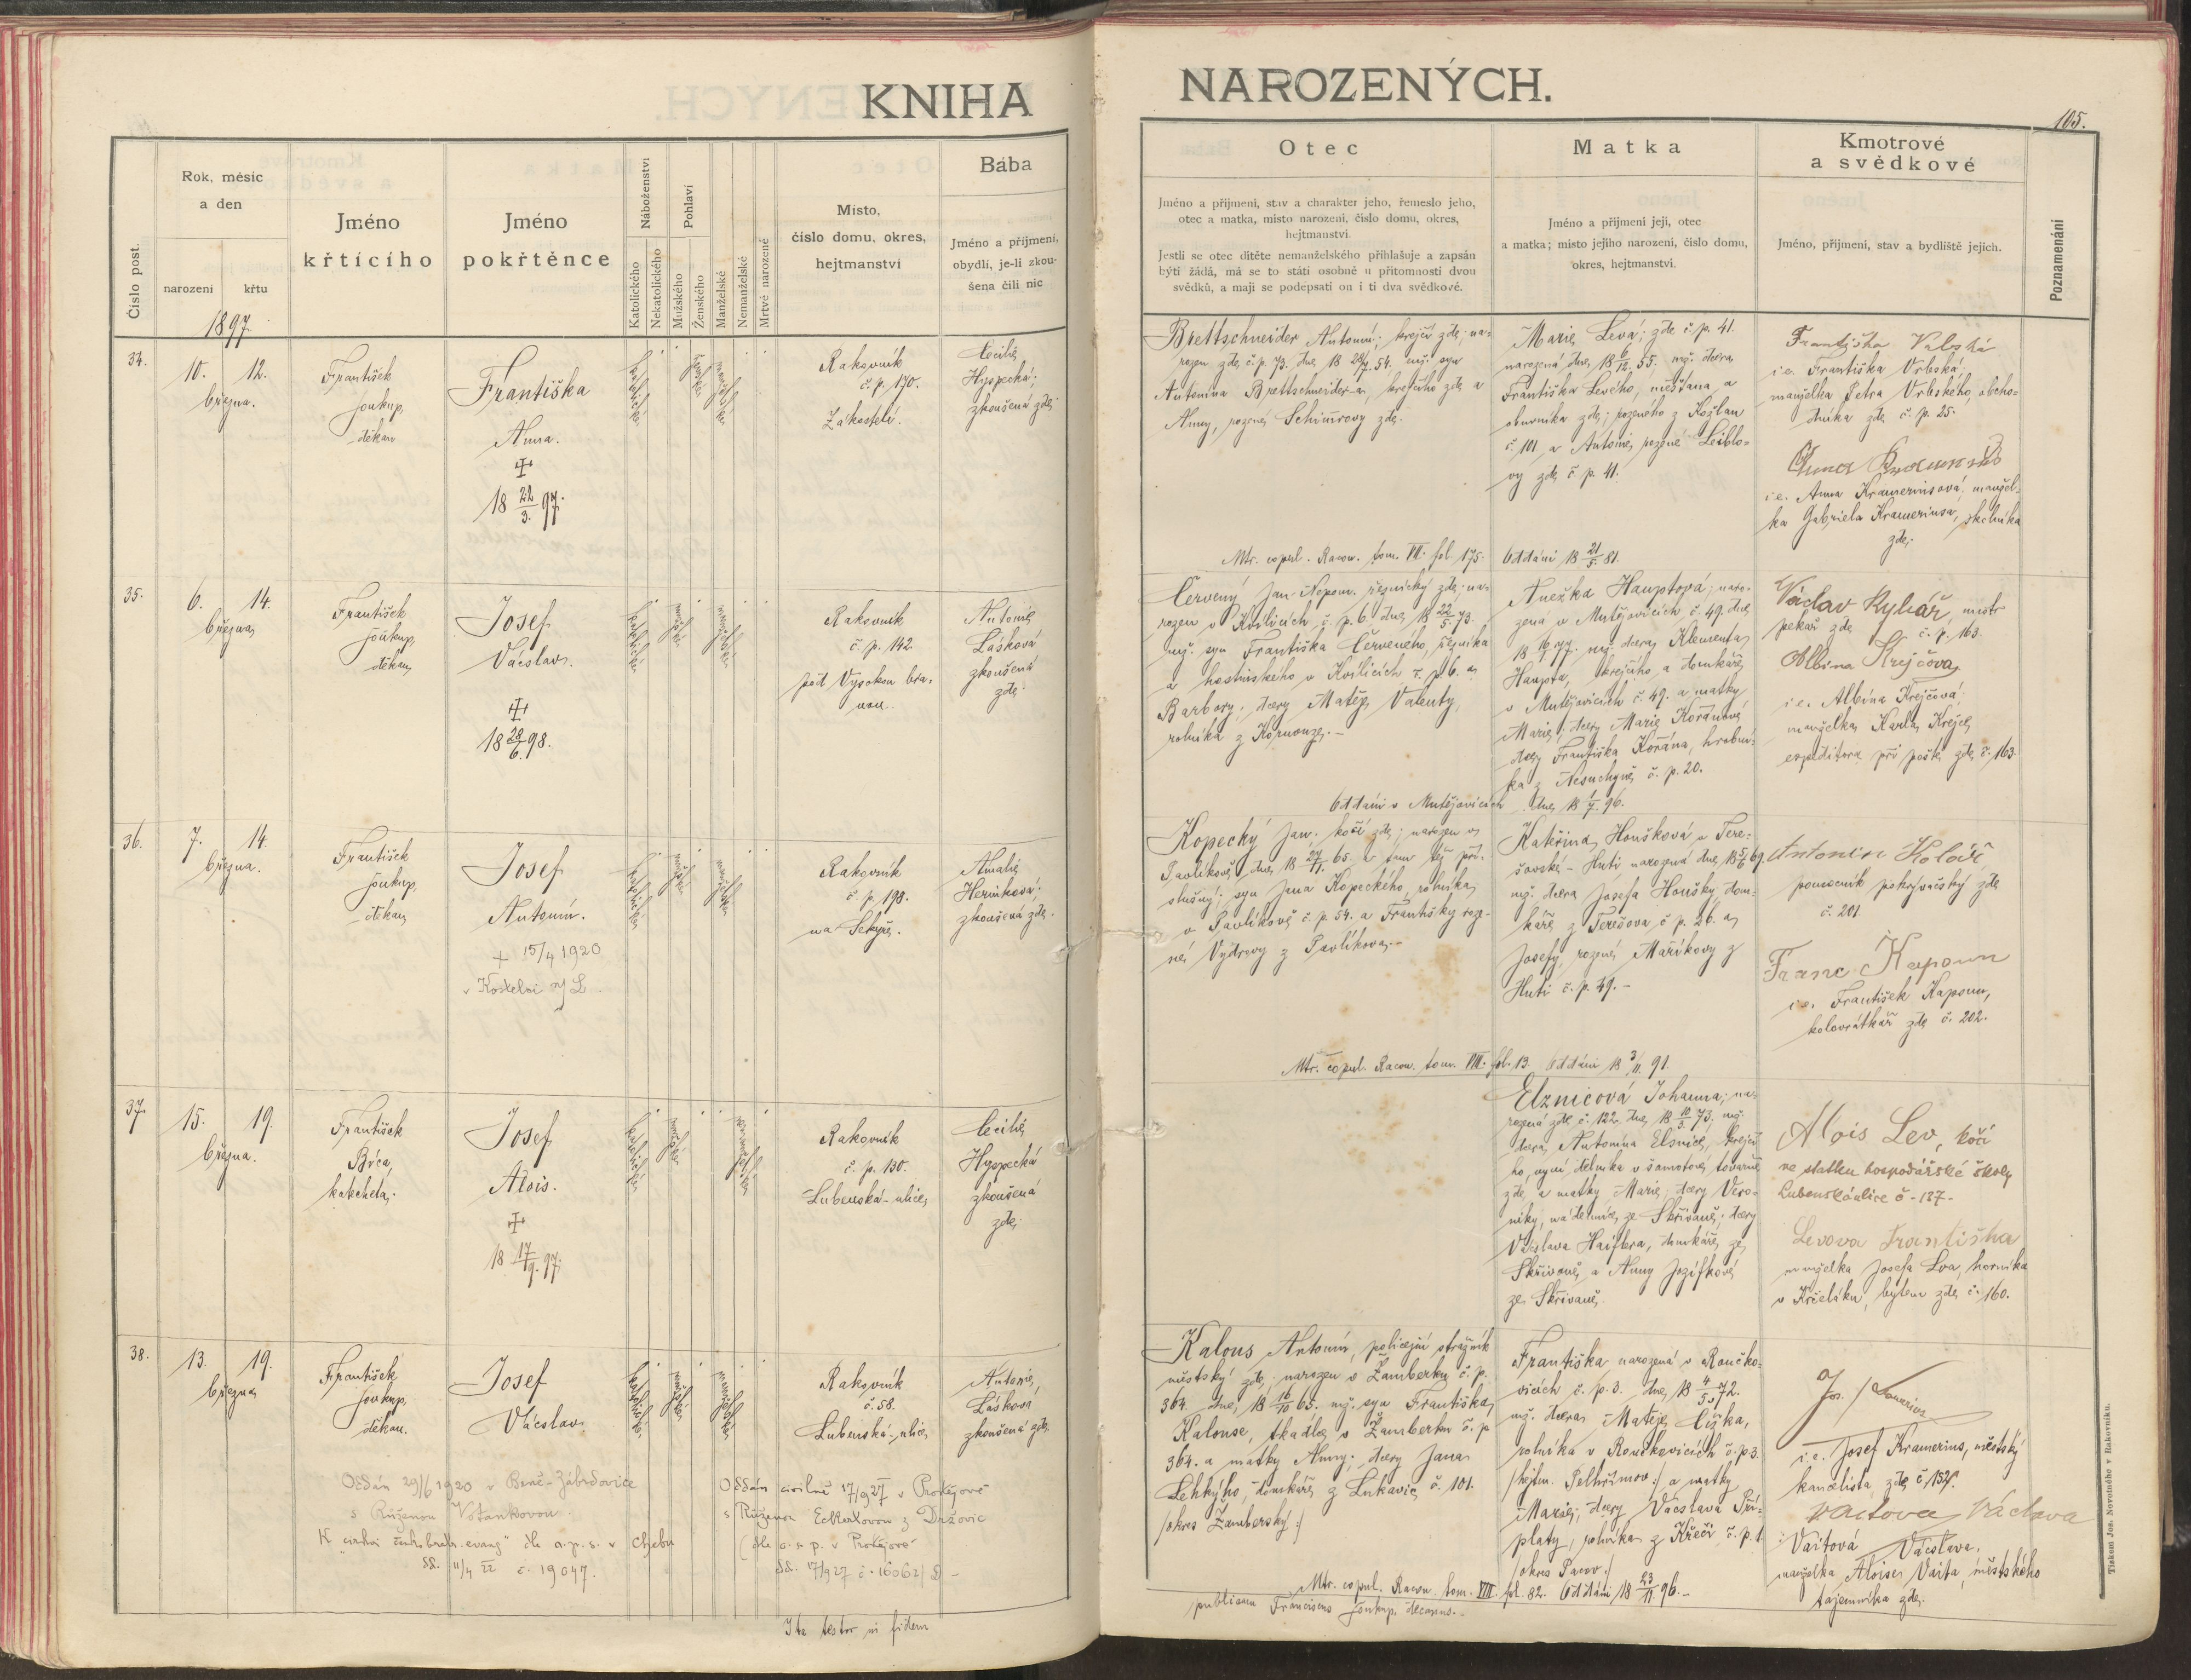 KNIHA
NAROZENÝCH.
105.
Číslo post.
Rok, měsíc
a den
narození
křtu
1897
Jméno
křtícího
Jméno
pokřtěnce
Náboženství
Katolického
Nekatolického
Pohlaví
Mužského
Ženského
Manželské
Nemanželské
Mrtvě narozené
Místo,
číslo domu, okres,
hejtmanství
Bába
Jméno a příjmení,
obydlí, je-li zkou-
šena čili nic
Otec
Jméno a příjmení, stav a charakter jeho, řemeslo jeho,
otec a matka, místo narození, číslo domu, okres,
hejtmanství.
Jestli se otec dítěte nemanželského přihlašuje a zapsán
býti žádá, má se to státi osobně u přítomnosti dvou
svědků, a mají se podepsati on i ti dva svědkové.
Matka
Jméno a příjmení její, otec
a matka; místo jejího narození, číslo domu,
okres, hejtmanství.
Kmotrové
a svědkové
Jméno, příjmení, stav a bydliště jejich.
Poznamenání
34.
10. 12.
března.
František
Soukup,
děkan
Františka
Anna.
18 22/3. 97.
Rakovník
č. p. 170.
Zákostelí.
Cecilie
Hyspecká;
zkoušená zde.
Brettschneider Antonín; krejčí zde; na-
rozen zde č. p. 73. dne 18 28/7. 54. mž. syn
Antonína Brettschneider-a, krejčího zde a
Anny, rozené Schimrovy zde.
Marie Levá; zde č. p. 41.
narozená dne 18 6/12. 55. mž. dcera
Františka Levého, měšťana a
obuvníka zde; rozeného z Kožlan
č. 101 a Antonie, rozené Leiblo-
vy zde č. p. 41.
i. e. Františka Vrbská,
manželka Petra Vrbského, obcho-
dníka zde č. p. 25.
i. e. Anna Krameriusová; manžel-
ka Gabriela Krameriusa, sklníka
zde.
Mtr. copul. Racon. tom. VII. fol. 175. Oddáni 18 21/5. 81.
35.
6. 14.
března
František
Soukup,
děkan
Josef
Václav.
18 28/6. 98.
Rakovník
č. p. 142.
pod Vysokou bra-
nou.
Antonie
Lášková
zkoušená
zde.
Červený Jan Nepom. řeznický zde; na-
rozen v Kosticích č. p. 6. dne 18 22/5. 73.
mž. syn Františka Červeného, řezníka
a hostinského v Kosticích č. p. 6. a
Barbory, dcery Matěje Valenty,
rolníka z Kornouze.-
Anežka Hauptová; naro-
zená v Mutějovicích č. 49. dne
18 16/1. 77. mž. dcera Klementa
Haupta, krejčího a domkáře
v Mutějovicích č. 49. a matky
Marie; dcery Marie Kořánové
dcery Františka Kořána, hrobní-
ka z Nesuchyně č. p. 20.
Václav Rybář, mistr
pekař zde č. p. 163.
Albina Krejčova
i. e. Albína Krejčová
manželka Karla Krejčí,
expeditora při poště zde č. 163.
Oddáni v Mutějovicích dne 18 1/7. 96.
36.
7. 14.
března.
František
Soukup,
děkan
Josef
Antonín.
+ 15/4 1920
v Kostelci n/L.
Rakovník
č. p. 198.
na Sekyře.
Amalie
Herinková;
zkoušená zde.
Kopecký Jan; kočí zde; narozen v
Pavlíkově dne 18 24/11. 65. a tam též pří-
slušný; syn Jana Kopeckého, rolníka
v Pavlíkově č. p. 54. a Františky roze-
né Vydrovy z Pavlíkova.-
Kateřina Houšková v Tere-
šovské-Huti narozená dne 18 5/6 69.
mž. dcera Josefa Houšky, dom-
káře z Terešova č. p. 26. a
Josefy, rozené Maříkovy z
Huti č. p. 49.-
Antonin Kolář
pomocník pokrývačský zde
č. 201.
Franc Kapoun
i. e. František Kapoun,
kolovrátkář zde č. 202.
Mtr. copul. Racon. tom. VIII. fol. 13. Oddáni 18 3/11. 91.
37.
15. 19.
března.
František
Brca,
katecheta.
Josef
Alois.
18 17/9. 97.
Rakovník
č. p. 130.
Lubenská-ulice
Cecilie
Hyspecká
zkoušená
zde.
Elznicová Johanna; na-
rozená zde č. 122. dne 18 10/5. 73. mž.
dcera Antonína Elsnice, krejčí-
ho, nyní dělníka v šamotové továrně
zde a matky Marie; dcery Vero-
niky, nádenice ze Skřivaně; dcery
Václava Haiflera, domkáře ze
Skřivaně, a Anny Jozífkové
ze Skřivaně.
Alois Lev, kočí
na statku hospodářské školy
Lubenská ulice č-137-
Levova Františka
manželka Josefa Lva, horníka
v Krčeláku, bytem zde č. 160.
38.
13. 19.
března
František
Soukup,
děkan.
Josef
Václav.
Rakovník
č. 58.
Lubenská-ulice
Antonie
Lášková
zkoušená zde.
Oddán 29/6 1920 v Brně-Zábrdovice
s Růženou Votánkovou.
K "církvi českobratr. evang" dle o.p.s. v Chebu
dd. 11/4 22 č. 19047.
Oddán civilně 17/9 27 v Prostějově
s Růženou Eckertovou z Držovic
(dle o. s. p. v Prostějově
dd. 17/9 27 č. 16062/D-
Kalous Antonín, policejní strážník
městský zde, narozen v Žamberku č. p.
364. dne 18 16/10 65. mž. syn Františka
Kalouse, tkadlce v Žamberku č. p.
364. a matky Anny; dcery Jana
Lehkýho, domkáře z Lukavice č. 101.
/okres Žamberský:/
Františka narozená v Roučko-
vicích č. p. 3. dne 18 4/5 72.
mž. dcera Matěje Čiška,
rolníka v Roučkovicích č. p. 3.
/hejtm. Pelhřimov:/ a matky
Marie; dcery Václava Pří-
platy, rolníka z Křeči č. p. 1.
/okres Pacov:/
Jos. Kramerius
i. e. Josef Kramerius, městský
kancelista zde č. 152/I.
Vaitova Václava
Vaitová Václava,
manželka Aloise Vaita, městského
tajemníka zde.
Mtr. copul. Racon. tom. VIII. fol. 82. Oddáni 18 23/11. 96.-
Ita testor in fidem
publicam Franciscus Soukup, decanus.-
Tiskem Jos. Novotného v Rakovníku.